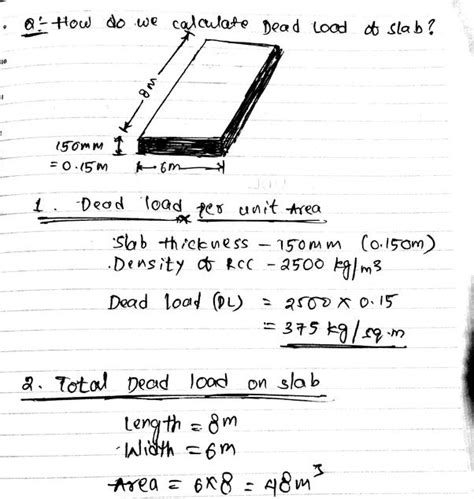 Q:- How do we calculate Dead load of slab?
8m
150mm
= 0.15m
6m
1. Dead load per unit Area
Slab thickness - 150mm (0.150m)
Density of RCC - 2500 kg/m3
Dead load (DL) = 2500 x 0.15
= 375 kg/sq.m
2. Total Dead load on slab
Length = 8m
Width = 6m
Area = 6x8 = 48m³